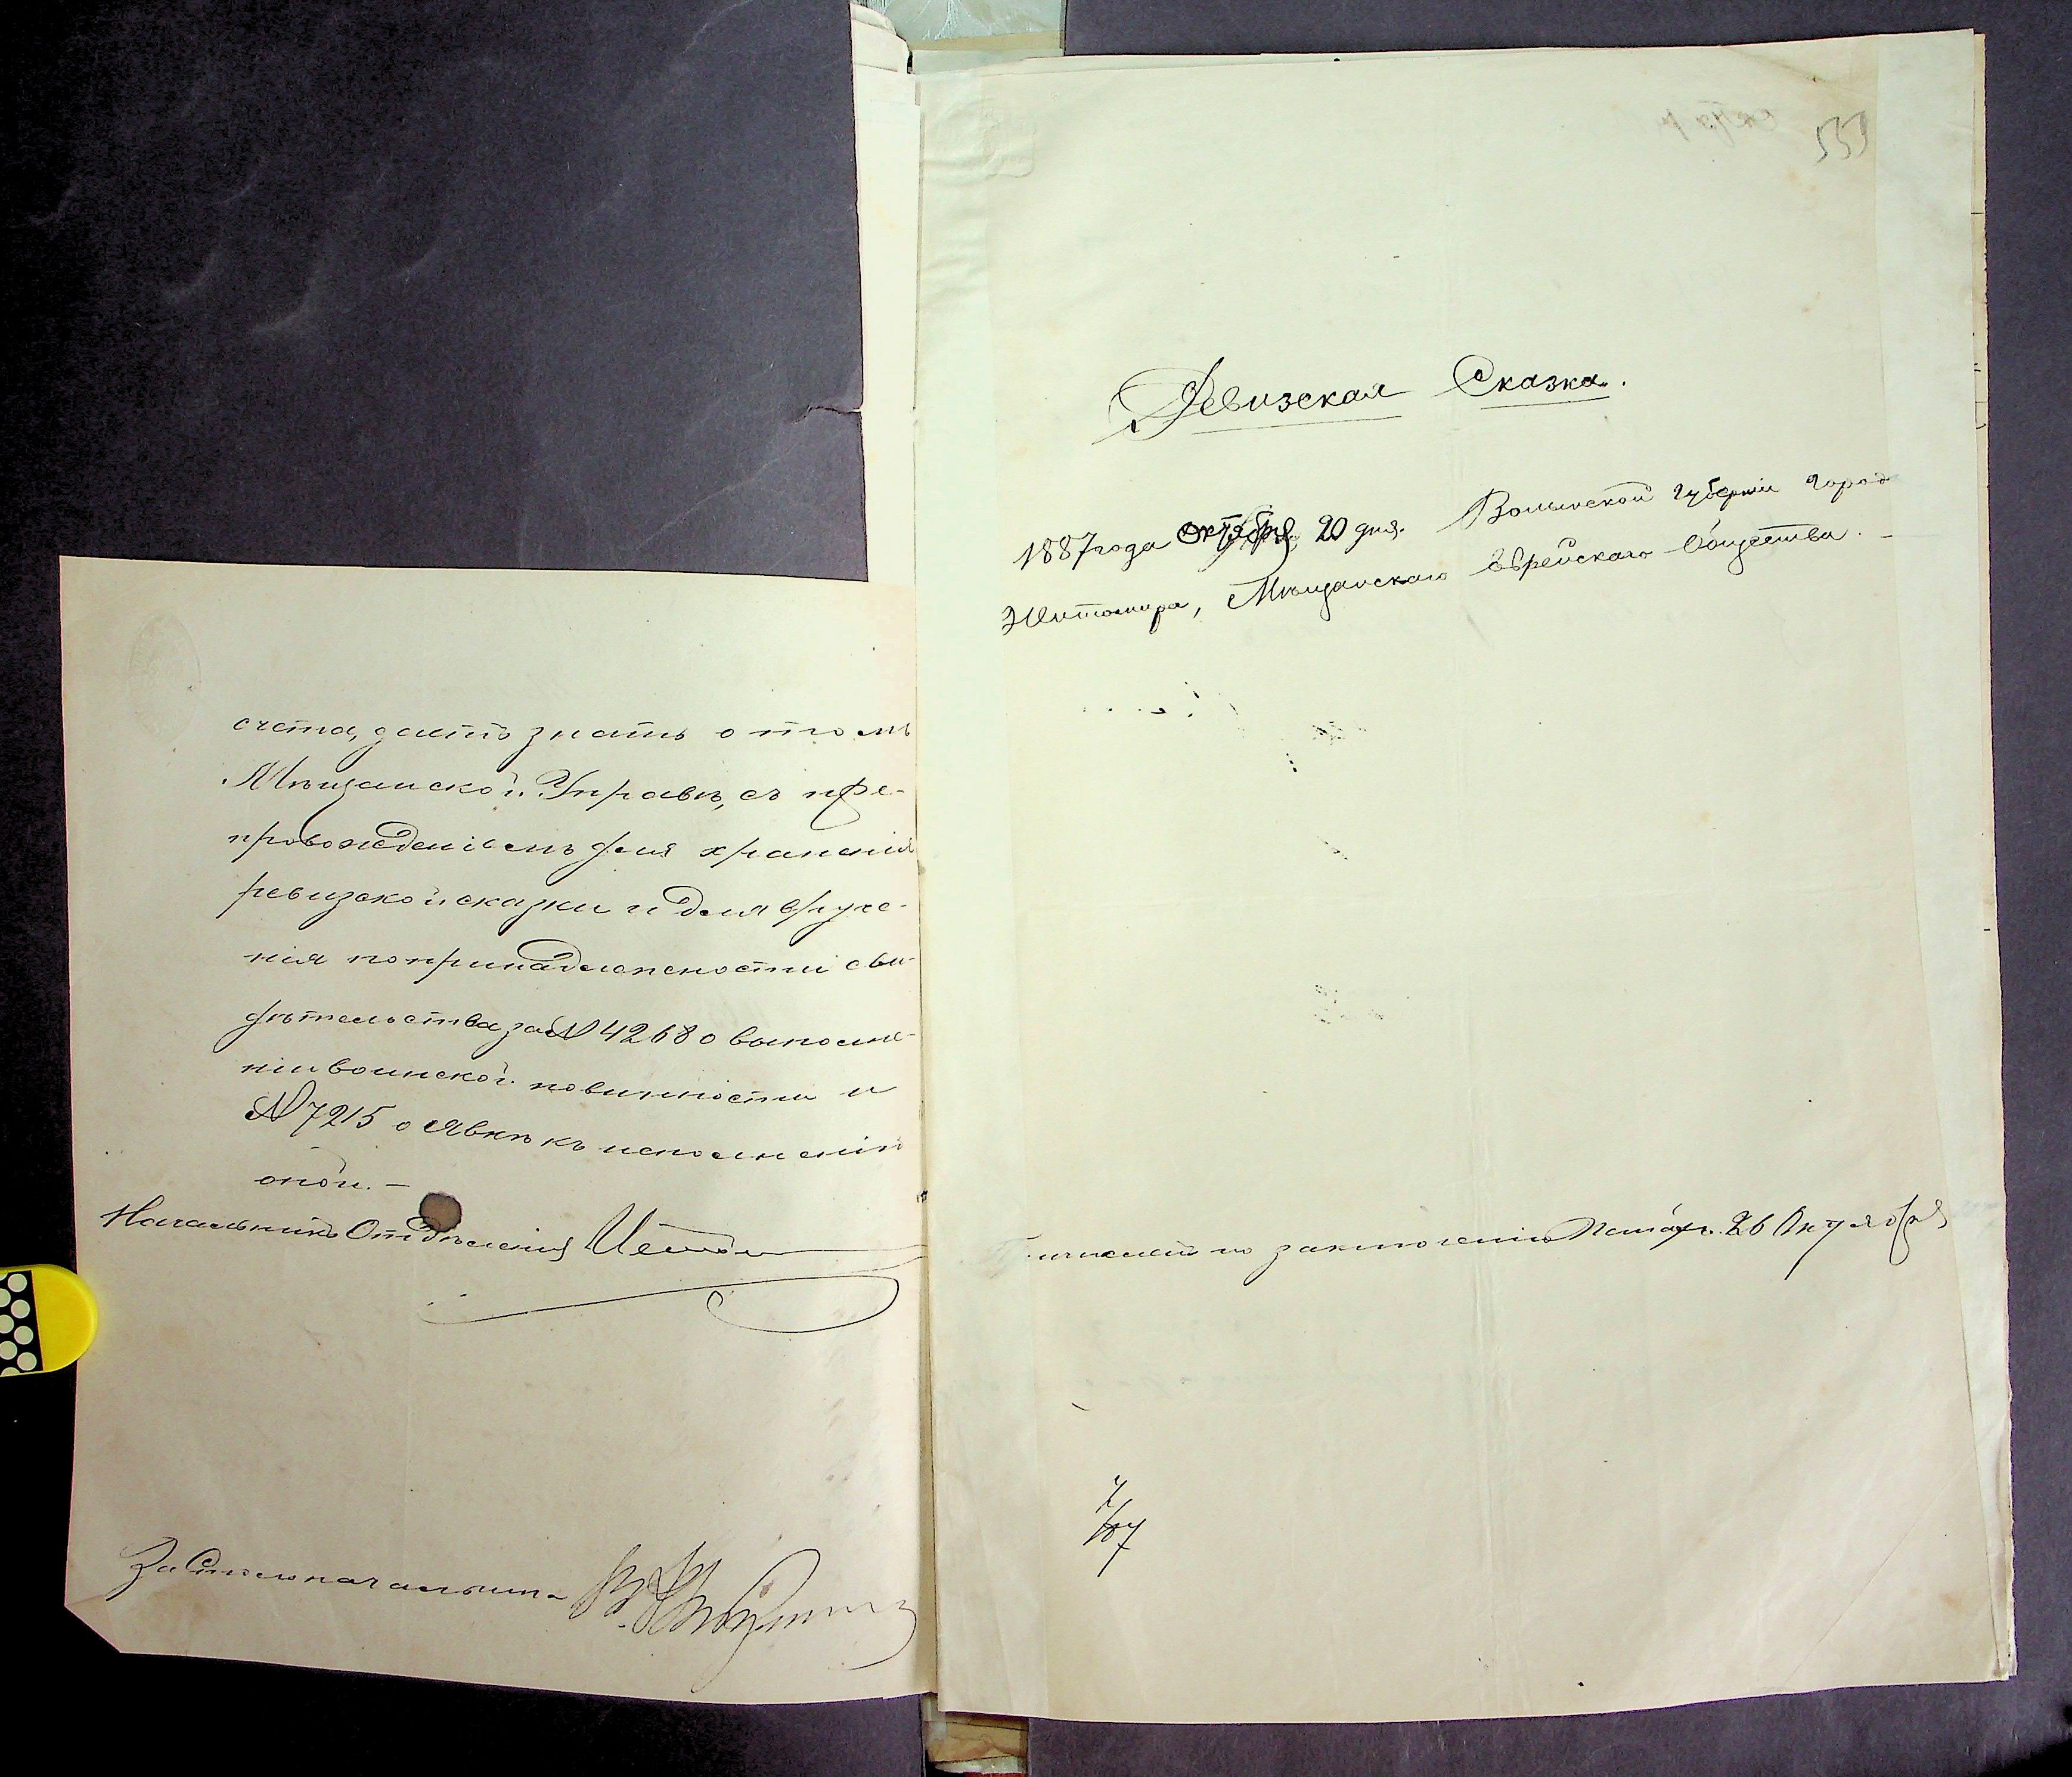 счета, дать знать о томъ
Мѣщанской Управѣ, съ пре-
провожденіемъ для храненія
ревизской сказки и для вруче-
нія по принадлежности сви-
дѣтельства за № 4268 о выполне-
ніи воинской повинности и
№ 7215 о явкѣ къ исполненію
оной. —
Начальникъ Отдѣленія
За Столоначальника
555
Ревизская Сказка.
1887 года Октября 20 дня. Волынской губерніи город
Житомира, Мѣщанскаго Еврейскаго Общества. —
по заключенію 26 Октября